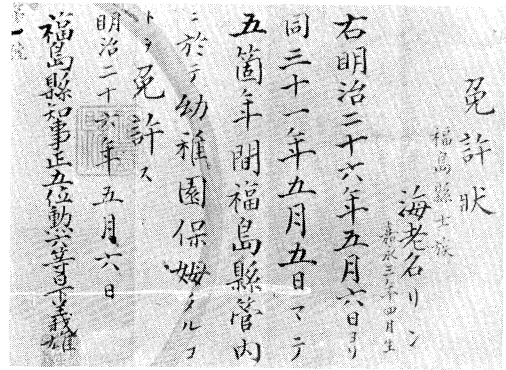 免許狀
福島縣士族
海老名リン
嘉永三年四月生
右明治二十六年五月六日ヨリ
同三十一年五月五日マテ
五箇年間福島縣管内
ニ於テ幼稚園保姆タルコ
トヲ免許ス
明治二十六年五月六日
福島縣知事正五位勲六等日下義雄